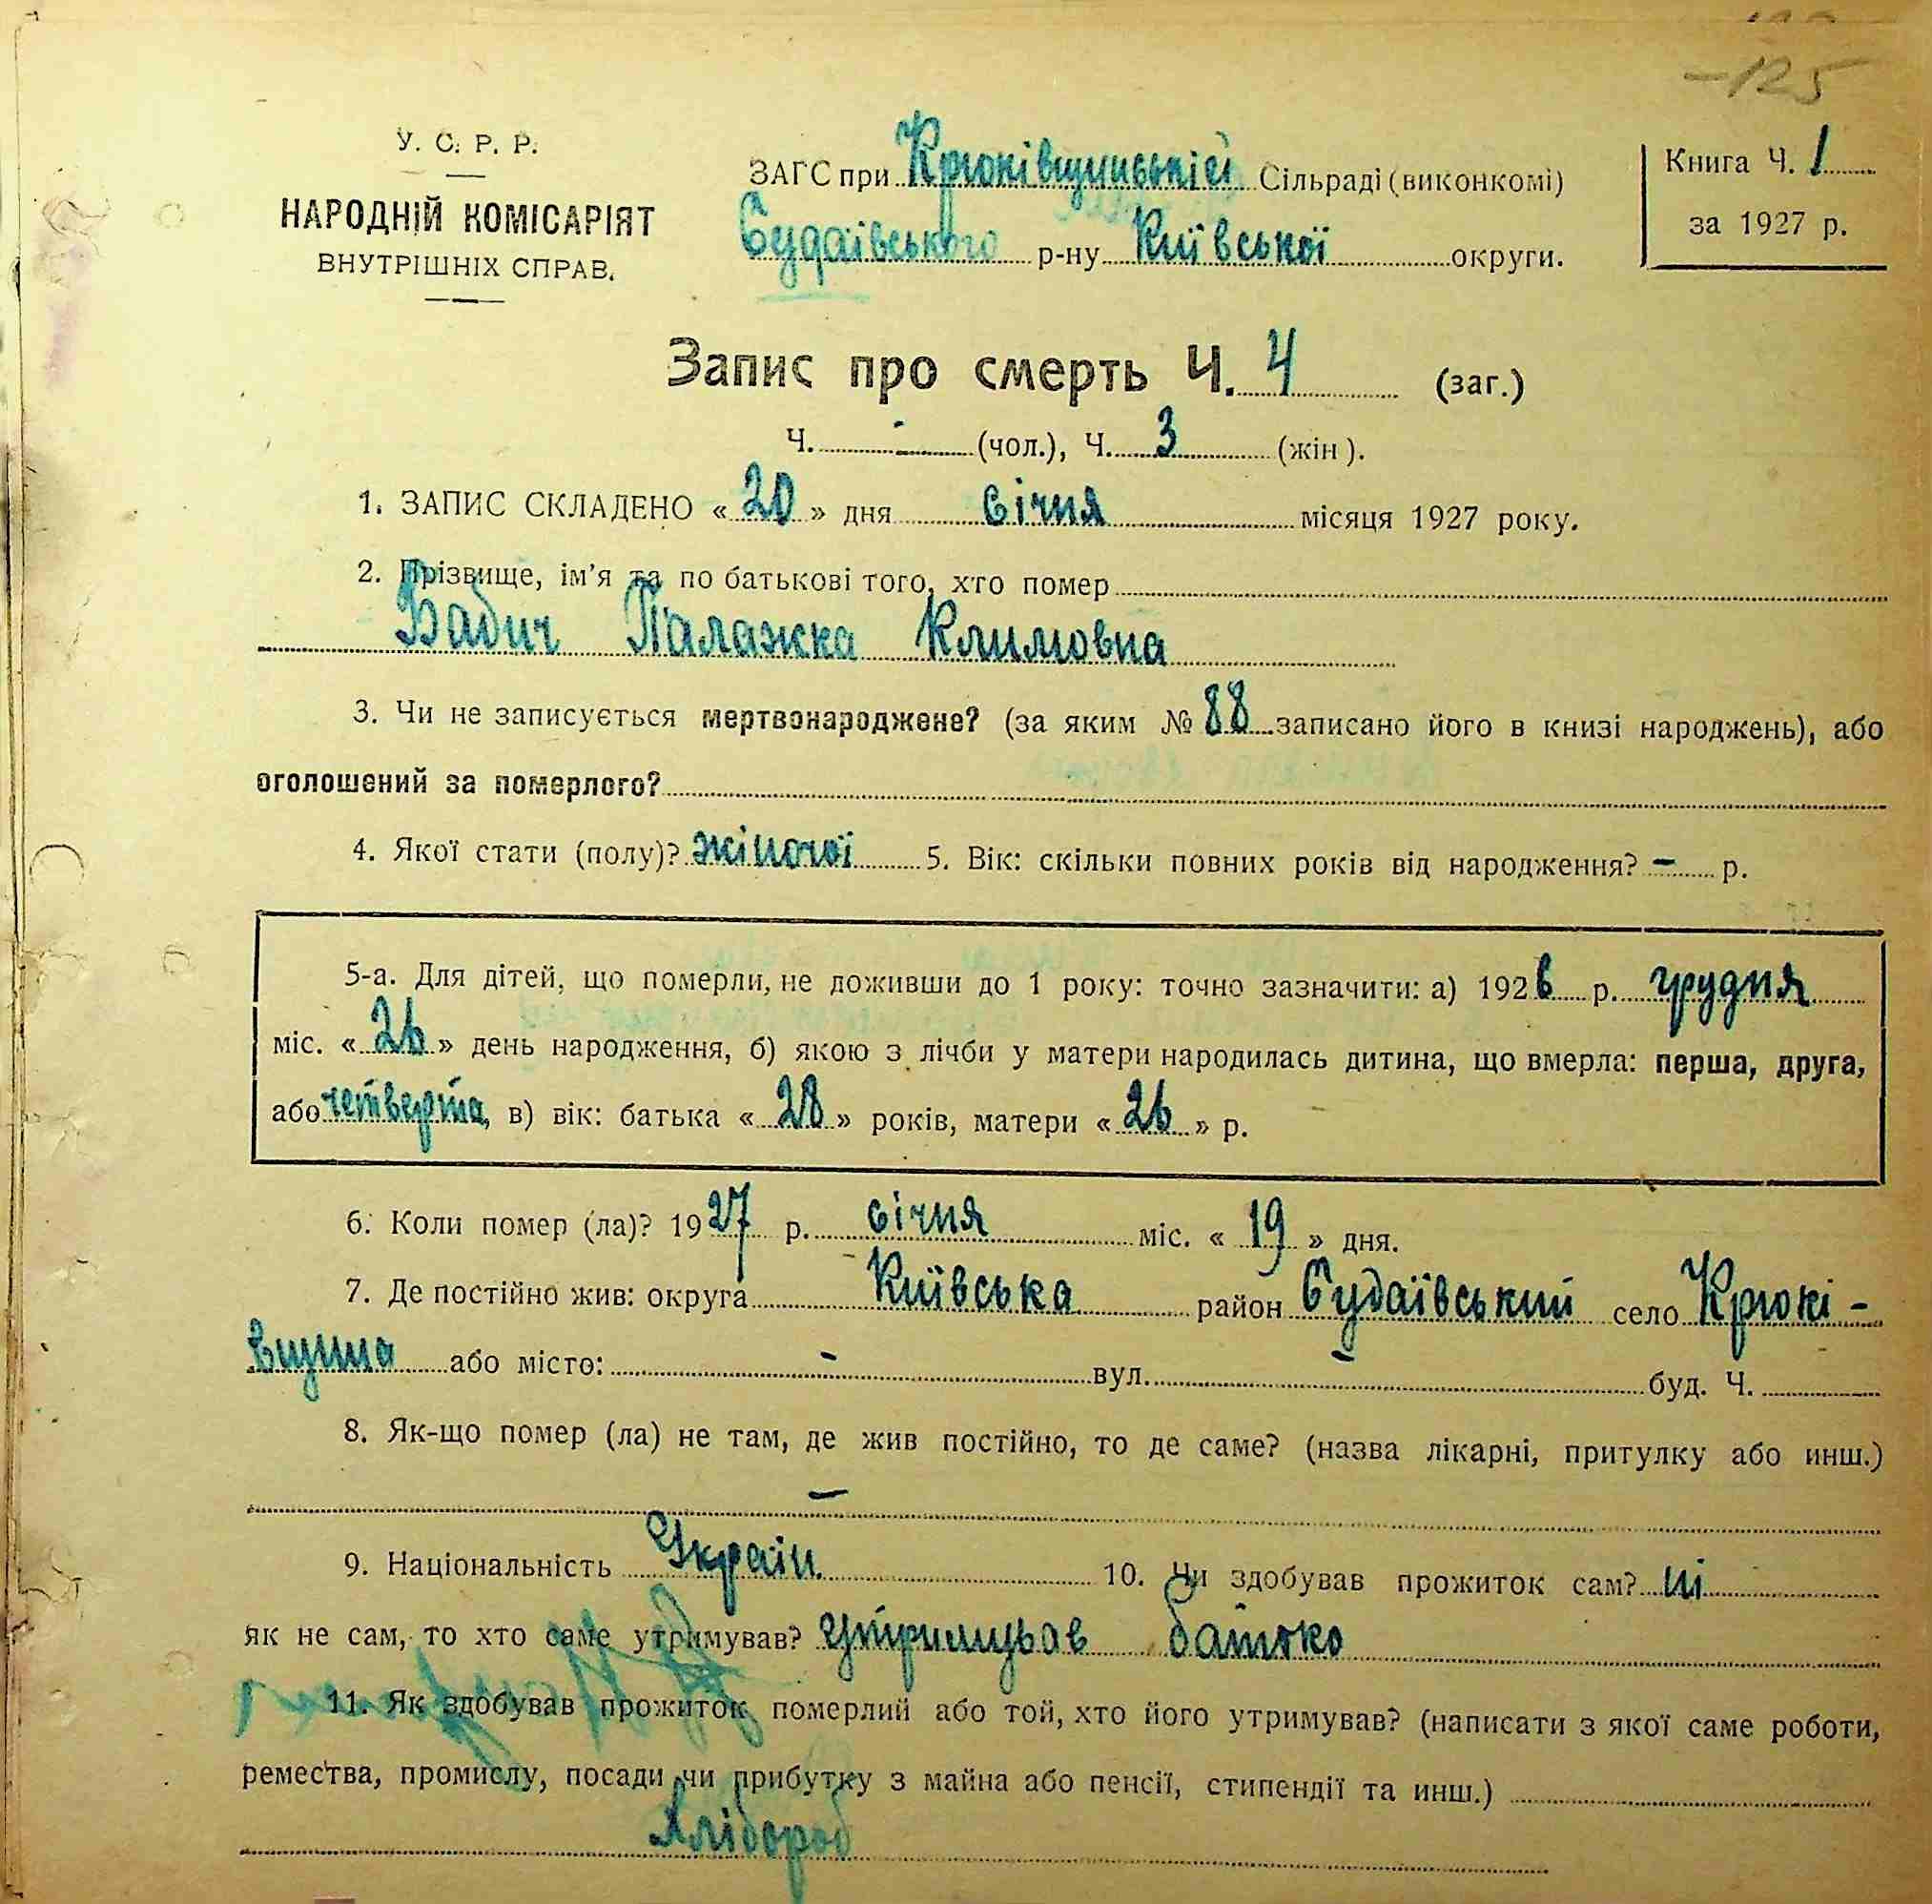 -125
У. С. Р. Р.
НАРОДНІЙ КОМІСАРІЯТ
ВНУТРІШНІХ СПРАВ.
ЗАГС при Крюківщинській Сільраді (виконкомі)
Будаївського р-ну Київської округи.
Книга Ч. 1
за 1927 р.
Запис про смерть Ч. 4 (заг.)
Ч. - (чол.), Ч. 3 (жін ).
1. ЗАПИС СКЛАДЕНО « 20 » дня січня місяця 1927 року.
2. Прізвище, ім'я та по батькові того, хто помер
Бабич Палажка Климовна
3. Чи не записується мертвонароджене? (за яким № 88 записано його в книзі народжень), або
оголошений за померлого?
4. Якої стати (полу)? жіночої 5. Вік: скільки повних років від народження? - р.
5-а. Для дітей, що померли, не доживши до 1 року: точно зазначити: а) 1926 р. грудня
міс. « 26 » день народження, б) якою з лічби у матери народилась дитина, що вмерла: перша, друга,
або четверта, в) вік: батька « 28 » років, матери « 26 » р.
6. Коли помер (ла)? 1927 р. січня міс. « 19 » дня.
7. Де постійно жив: округа Київська район Будаївський село Крюкі-
вщина або місто: - вул. - буд. Ч.
8. Як-що помер (ла) не там, де жив постійно, то де саме? (назва лікарні, притулку або инш.)
-
9. Національність Україн. 10. Чи здобував прожиток сам? ні
як не сам, то хто саме утримував? утримував батько
11. Як здобував прожиток померлий або той, хто його утримував? (написати з якої саме роботи,
ремества, промислу, посади чи прибутку з майна або пенсії, стипендії та инш.)
Хлібороб